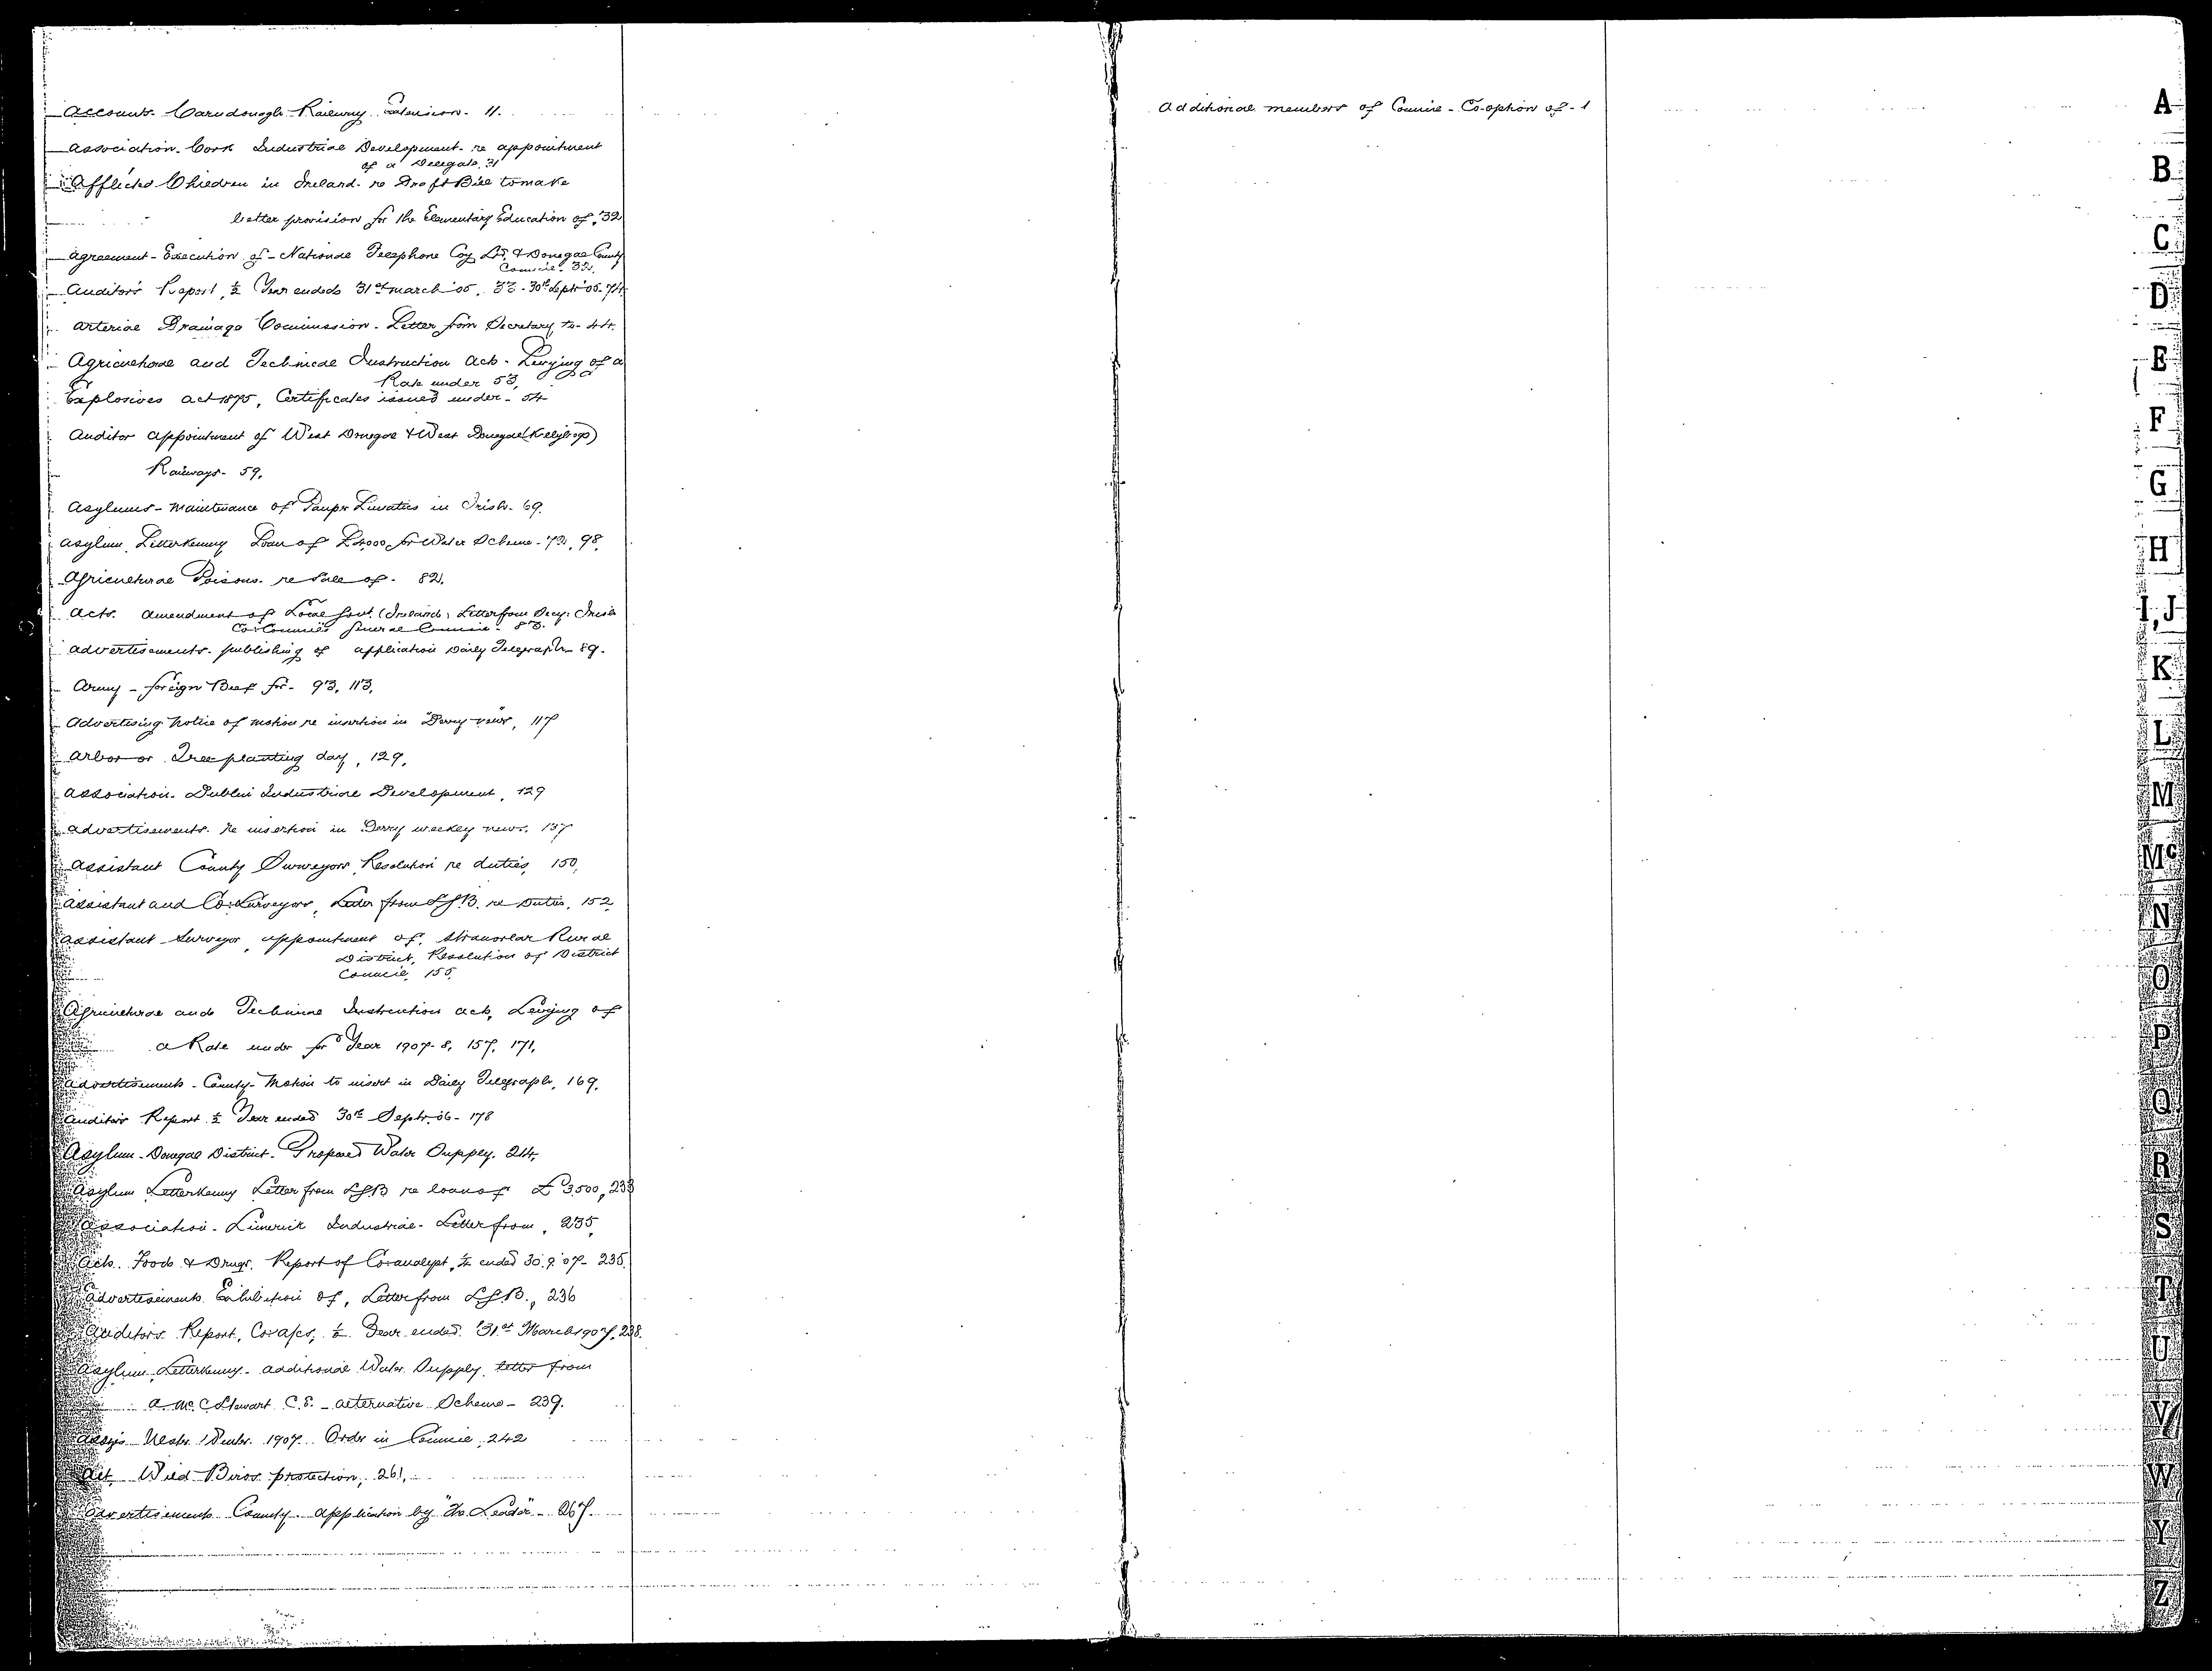 Accounts. Carndonagh Railway Extension. 11.
Association. Cork Industrial Development. re appointment
of a Delegate. 31
Afflicted Children in Ireland. re Draft Bill to make
better provision for the Elementary Education of. 32
Agreement - Execution of - National Telephone Coy Ltd. & Donegal County
Council. 32.
Auditors Report, ½ Year ended 31st March '05. 33 - 30th Septr '05. 74.
Arterial Drainage Commission. Letter from Secretary to. 44.
Agricultural and Technical Instruction Act. Levying of a
Rate under 53.
Explosives Act 1875, Certificates issued under. 54
Auditor appointment of West Donegal & West Donegal (Killybegs)
Railways. 59.
Asylums - Maintenance of Pauper Lunatics in Irish. 69.
Asylum, Letterkenny Loan of £4000 for Water Scheme. 72, 98.
Agricultural Poisons. re Sale of. 82.
Acts. Amendment of Local Govt. (Ireland) Letter from Secy: Irish
Co: Councils General Council. 83.
Advertisements. publishing of application Daily Telegraph. 89.
Army - foreign Beef for. 93. 113.
Advertising Notice of motion re insertion in "Derry News", 117
Arbor or Tree planting day, 129.
Association. Dublin Industrial Development, 129
Advertisements. re insertion in Derry weekly news. 137
Assistant County Surveyors, Resolution re duties, 150,
Assistant and Co: Surveyors, Letter from L.G.B. re Duties, 152
Assistant Surveyor, appointment of, Stranorlar Rural
District, Resolution of District
Council, 155.
Agricultural and Technical Instruction Act, Levying of
a Rate under for Year 1907-8, 157, 171.
Advertisements - County - Motion to insert in Daily Telegraph, 169.
Auditors Report ½ Year ended 30th Septr. 06 - 178
Asylum - Donegal District. Proposed Water Supply. 214.
Asylum Letterkenny Letter from L.G.B re loan of £3,500, 233
Association. Limerick Industrial. Letter from, 235,
Acts. Food & Drugs. Report of Co: analyst, ½ ended 30.9.07 - 235.
Advertisements Exhibition of, Letter from L.G.B., 236
Auditors Report, Co: a/cs, ½ Year ended 31st March 1907, 238.
Asylum, Letterkenny. additional Water Supply, letter from
A. McC Stewart C.E. - alternative Scheme - 239.
1907. Order in Council, 242
Act Wild Birds protection, 261.
Advertisements County. application by "The Leader" - 267.
Additional members of Council - Co-option of - 1
A
B
C
D
E
F
G
H
I, J
K
L
M
Mc
N
O
P
Q
R
S
T
U
V
W
Y
Z